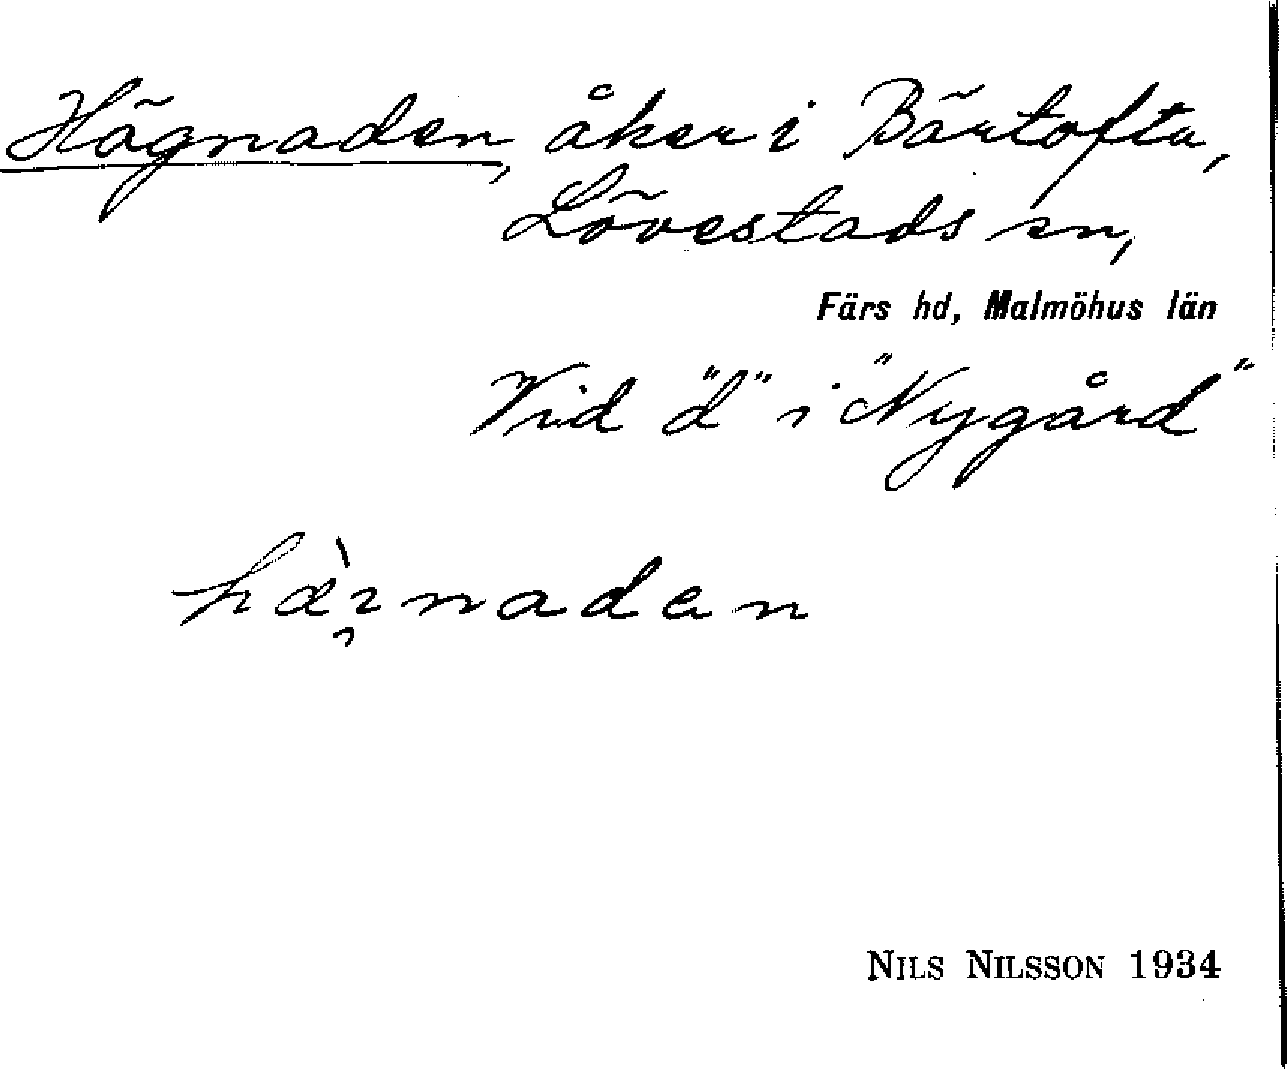 Hägnaden, åker i Bärtofta,
Lövestads sn,
Färs hd, Malmöhus län
Vid "d" i "Nygård"
NILS NILSSON 1934